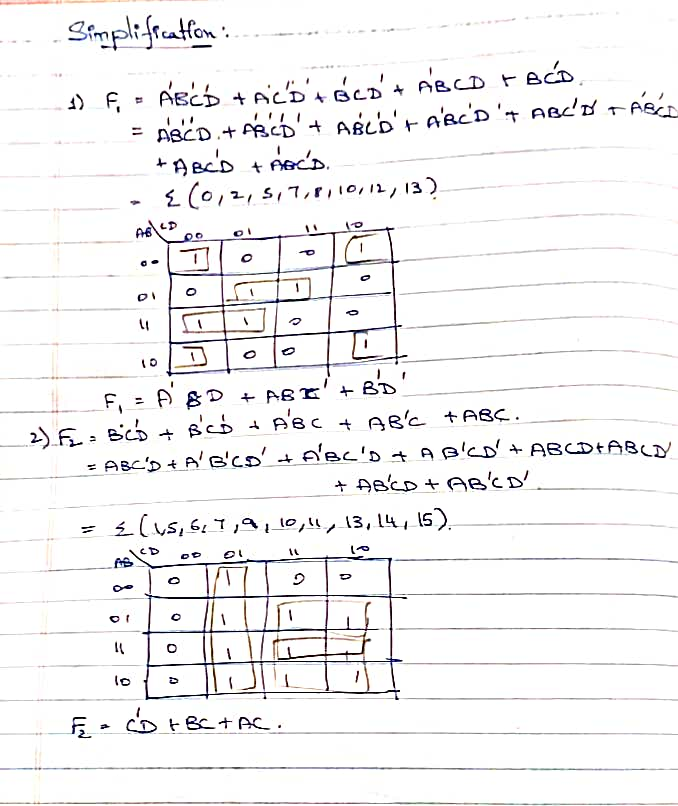 Simplification:
1) F₁ = A'B'C'D + A'C'D' + B'CD' + A'BCD + BC'D.
= A'B'C'D' + A'B'CD' + AB'C'D' + A'BC'D + ABC'D' + A'BCD
+ ABC'D + A'BC'D.
= Σ(0,2,5,7,8,10,12,13)
AB\CD 00 01 11 10
00 1 0 0 1
01 0 1 1 0
11 1 1 0 0
10 1 0 0 1
F₁ = A'BD + ABC' + B'D'
2) F₂ = BC'D + B'C'D + A'BC + AB'C + ABC.
= ABC'D + A'B'CD' + A'BC'D + AB'CD' + ABCD + ABCD'
+ AB'CD + AB'CD'.
= Σ(1,5,6,7,9,10,11,13,14,15).
AB\CD 00 01 11 10
00 0 1 0 0
01 0 1 1 1
11 0 1 1 1
10 0 1 1 1
F₂ = C'D + BC + AC.